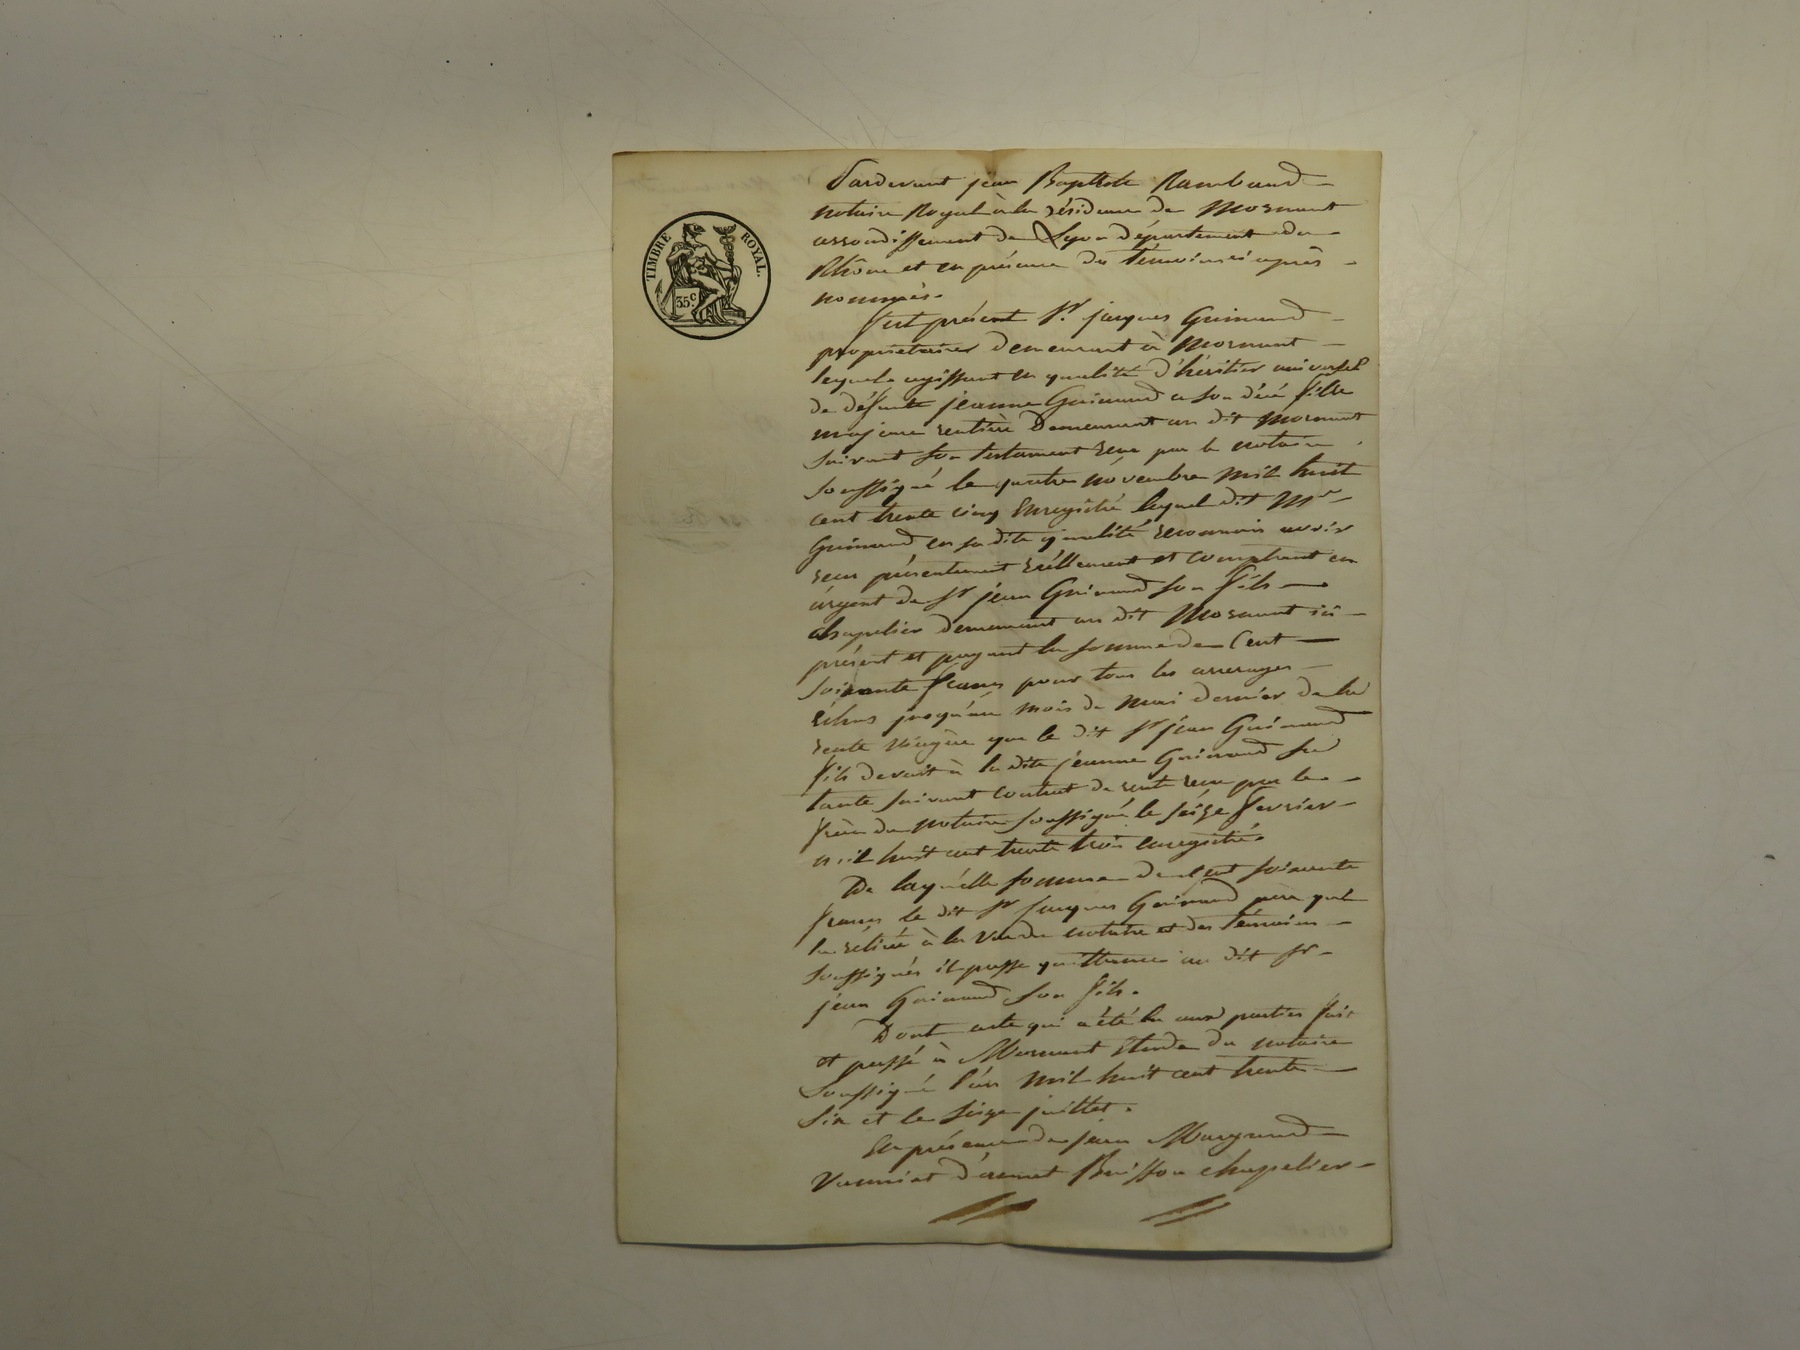 TIMBRE ROYAL.
35c
Pardevant jean Baptiste Rambaud
notaire Royal à la résidence de Mornant
arrondissement de Lyon département du
Rhône et en présence des témoins ci après
nommés.
fut présent Sr. jacques Guinand
propriétaire demeurant à Mornant
lequel agissant en qualité d'héritier universel
de défunte jeanne Guinand a son décé fille
majeure rentière demeurant au dit Mornant
suivant son testament reçu par le notaire
soussigné le quatre novembre mil huit
cent trente cinq Enregistré lequel dit Mr
Guinand en sa dite qualité reconnais avoir
reçu présentement réellement et comptant en
argent de Sr jean Guinand son fils
chapelier demeurant au dit Mornant ici
présent et payant la somme de Cent
soixante francs pour tous les arrerages
échus jusqu'au mois de mai dernier de la
rente viagère que le dit Sr jean Guinand
fils devait à la dite jeanne Guinand sa
tante suivant contrat de rente reçu par le
frère du notaire soussigné le seize fevrier
mil huit cent trente trois enregistré.
De laquelle somme de Cent soixante
francs le dit Sr Jacques Guinand père qui
la retirée à la vue du notaire et des témoins
soussignés il passe quittance au dit Sr
jean Guinand son fils.
Dont acte qui a été lu aux parties fait
et passé à Mornant Etude du notaire
soussigné l'an mil huit cent trente
six et le seize juillet.
En présence de jean
Buisson chapelier